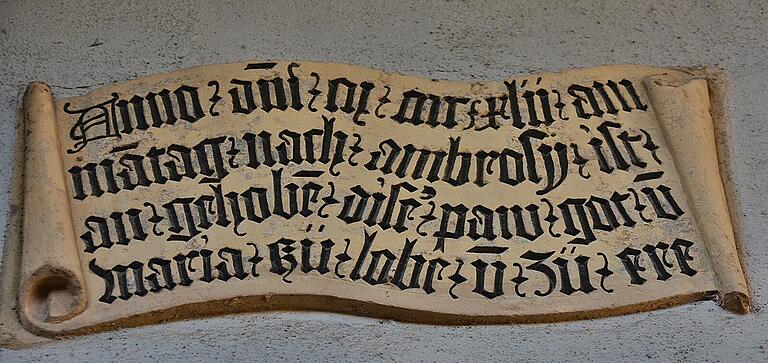 Anno dn̄i m cccc xlii am
mātag nach ambrosy ist
an gehobē diser paw got v̄
maria zü lobe v̄ zü ere